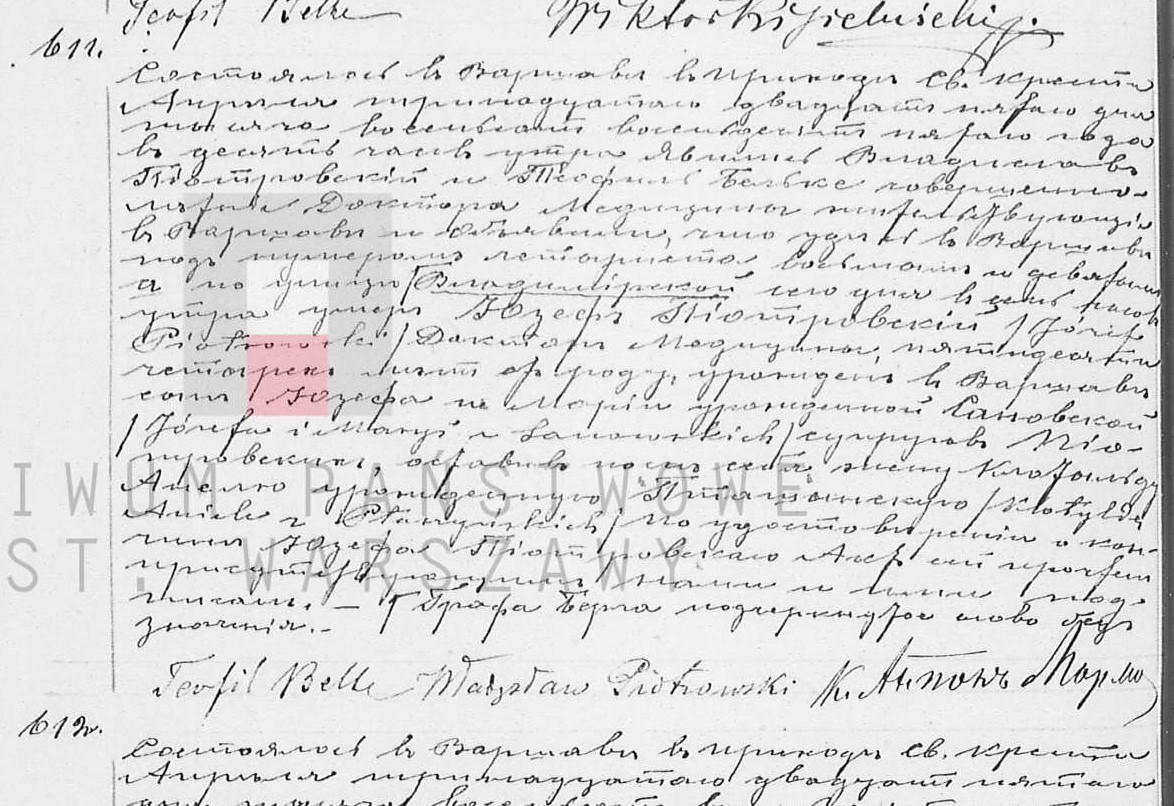 Teofil Belke
611.
Состоялось въ Варшавѣ въ приходѣ Св. Креста
Апрѣля тринадцатаго двадцать пятаго дня
тысяча восемьсотъ восемьдесятъ пятаго года
въ десять часовъ утра. Явились Владиславъ
Піотровскій и Теофиль Бельке совершенно-
лѣтніе Доктора Медицины жительствующіе
въ Варшавѣ и объявили, что здѣсь въ Варшавѣ
подъ нумеромъ восьмымъ и
а по улицѣ /Владимірской сего дня въ часовъ
утра умеръ Юзефъ Піотровскій /Józef
Piotrowski/ Докторъ Медицины, пятидесяти
четырехъ лѣтъ отъ роду, урожденъ въ Варшавѣ
сынъ Юзефа и Маріи урожденной Сановской
/Józefa i Maryi z Sanowskich/ супруговъ Піо-
тровскихъ, оставивъ послѣ себя жену Клотильду
Анелю урожденную /Klotyldę
Anielę z /По удостовѣреніи о кон-
чинѣ Юзефа Піотровскаго Актъ сей прочтенъ
присутствующимъ Нами и ими под-
писанъ. — / Графа Берга подчеркнутое слово безъ
значенія. -
Teofil Belke Władysław Piotrowski К. Антонъ
612.
Состоялось въ Варшавѣ въ приходѣ Св. Креста
Апрѣля тринадцатаго двадцать пятаго
IWUM PAŃSTWOWE
ST. WARSZAWY